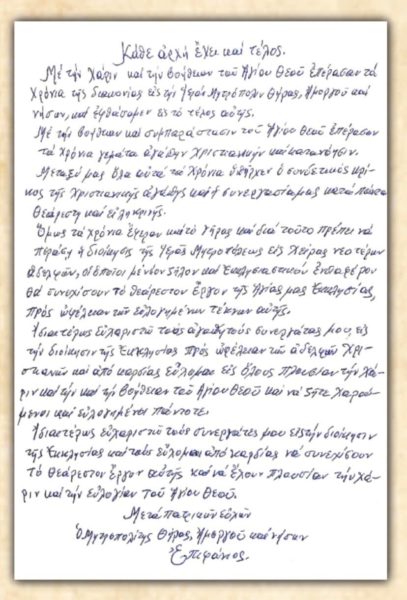 Κάθε ἀρχή ἔχει καί τέλος.
Μέ τήν Χάριν καί τήν βοήθειαν τοῦ Ἁγίου Θεοῦ ἐπέρασαν τά
Χρόνια τῆς διακονίας εἰς τήν Ἱεράν Μητρόπολιν Θήρας, Ἀμοργοῦ καί
νήσων, καί ἐφθάσαμεν εἰς τό τέλος αὐτῆς.
Μέ τήν βοήθειαν καί συμπαράστασιν τοῦ Ἁγίου Θεοῦ ἐπέρασαν
τά χρόνια γεμάτα ἀγάπην Χριστιανικήν καί κατανόησιν.
Μεταξύ μας ὅλα αὐτά τά Χρόνια ὑπῆρχεν ὁ συνδετικός κρί-
κος τῆς Χριστιανικῆς ἀγάπης καί ἡ συνεργασία μας κατά πάντα
θεάρεστη καί εἰλικρινής.
Ὅμως τά χρόνια ἔφεραν καί τό γῆρας καί διά τοῦτο πρέπει νά
περάσῃ ἡ διοίκησις τῆς Ἱερᾶς Μητροπόλεως εἰς χεῖρας νεοτέρων
ἀδελφῶν, οἱ ὁποῖοι μέ νέον ζῆλον καί Ἐκκλησιαστικόν ἐνδιαφέρον
θά συνεχίσουν τό θεάρεστον ἔργον τῆς Ἁγίας μας Ἐκκλησίας,
πρός ὠφέλειαν τῶν εὐλογημένων τέκνων αὐτῆς.
Ἰδιαιτέρως εὐχαριστῶ τούς ἀγαπητούς συνεργάτας μου, εἰς
τήν διοίκησιν τῆς Ἐκκλησίας πρός ὠφέλειαν τῶν ἀδελφῶν Χρι-
στιανῶν καί ἀπό καρδίας εὔχομαι εἰς ὅλους πλουσίαν τήν Χά-
ριν καί τήν καί τήν βοήθειαν τοῦ Ἁγίου Θεοῦ καί νά ζῆτε χαρού-
μενοι καί εὐλογημένοι πάντοτε.
Ἰδιαιτέρως εὐχαριστῶ τούς συνεργάτες μου εἰς τήν διοίκησιν
τῆς Ἐκκλησίας καί τούς εὔχομαι ἀπό καρδίας νά συνεχίσουν
τό θεάρεστον ἔργον αὐτῆς καί νά ἔχουν πλουσίαν τήν χά-
ριν καί τήν εὐλογίαν τοῦ Ἁγίου Θεοῦ.
Μετά πατρικῶν εὐχῶν
Ὁ Μητροπολίτης Θήρας, Ἀμοργοῦ καί νήσων
Ἐπιφάνιος.